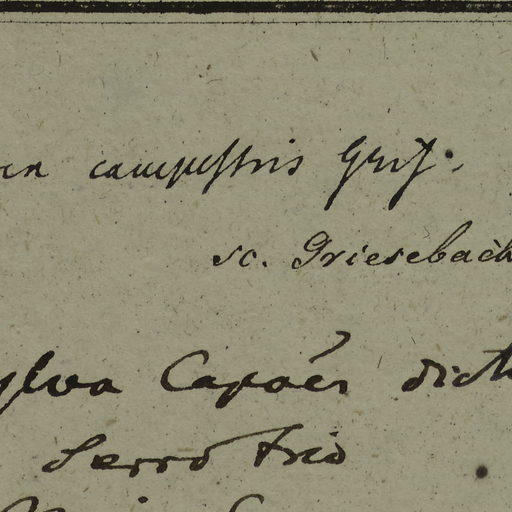 campestris Gris.
sc. Griesebach
sylva Capões dict
Serro frio